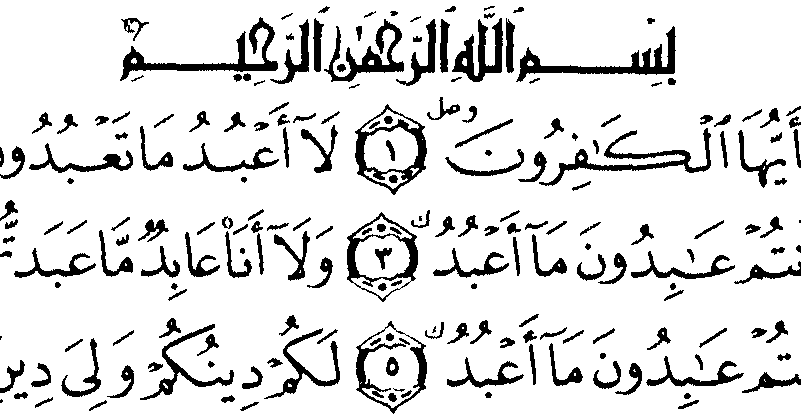 بِسْمِ اللَّهِ الرَّحْمَٰنِ الرَّحِيمِ
أَيُّهَا ٱلْكَٰفِرُونَ ١ لَآ أَعْبُدُ مَا تَعْبُدُونَ
عَٰبِدُونَ مَآ أَعْبُدُ ٣ وَلَآ أَنَا۠ عَابِدٌ مَّا عَبَدتُّ
عَٰبِدُونَ مَآ أَعْبُدُ ٥ لَكُمْ دِينُكُمْ وَلِىَ دِينِ